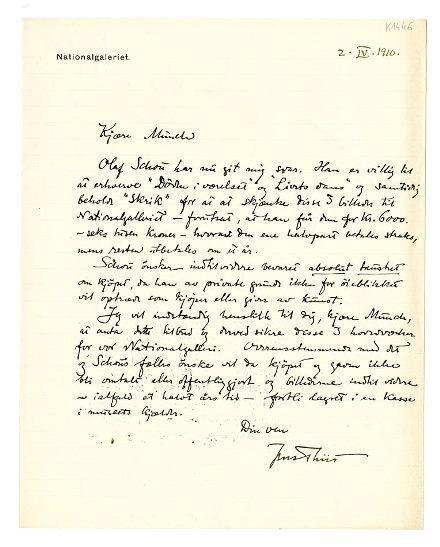 K1446
Nationalgaleriet.
2. IV. 1910.
Kjære Munch
Olaf Schou har nu git mig svar. Han er villig til
at erhverve "Døden i værelset" og "Livets dans" og samtidig
beholde "Skrik" for så at skjænke disse 3 billeder til
Nationalgalleriet – forutsat, at han får dem for Kr. 6000.
– seks tusen kroner – hvorav den ene halvpart betales straks,
mens resten utbetales om et år.
Schou ønsker indtil videre bevaret absolut taushet
om kjøpet, da han av private grunde ikke for øieblikket
vil optræde som kjøper eller giver av kunst.
Jeg vil indstændig henstille til dig, kjære Munch,
at anta dette tilbud og derved sikre disse 3 hovedværker
for vor Nationalgalleri. Overensstemmende med det
og Schous fælles ønske vil da kjøpet og gaven ikke
bli omtalt eller offentliggjort og billederne indtil videre
– ialfald et halvt års tid – forbli lagret i en kasse
i museets kjælder.
Din ven
Jens Thiis